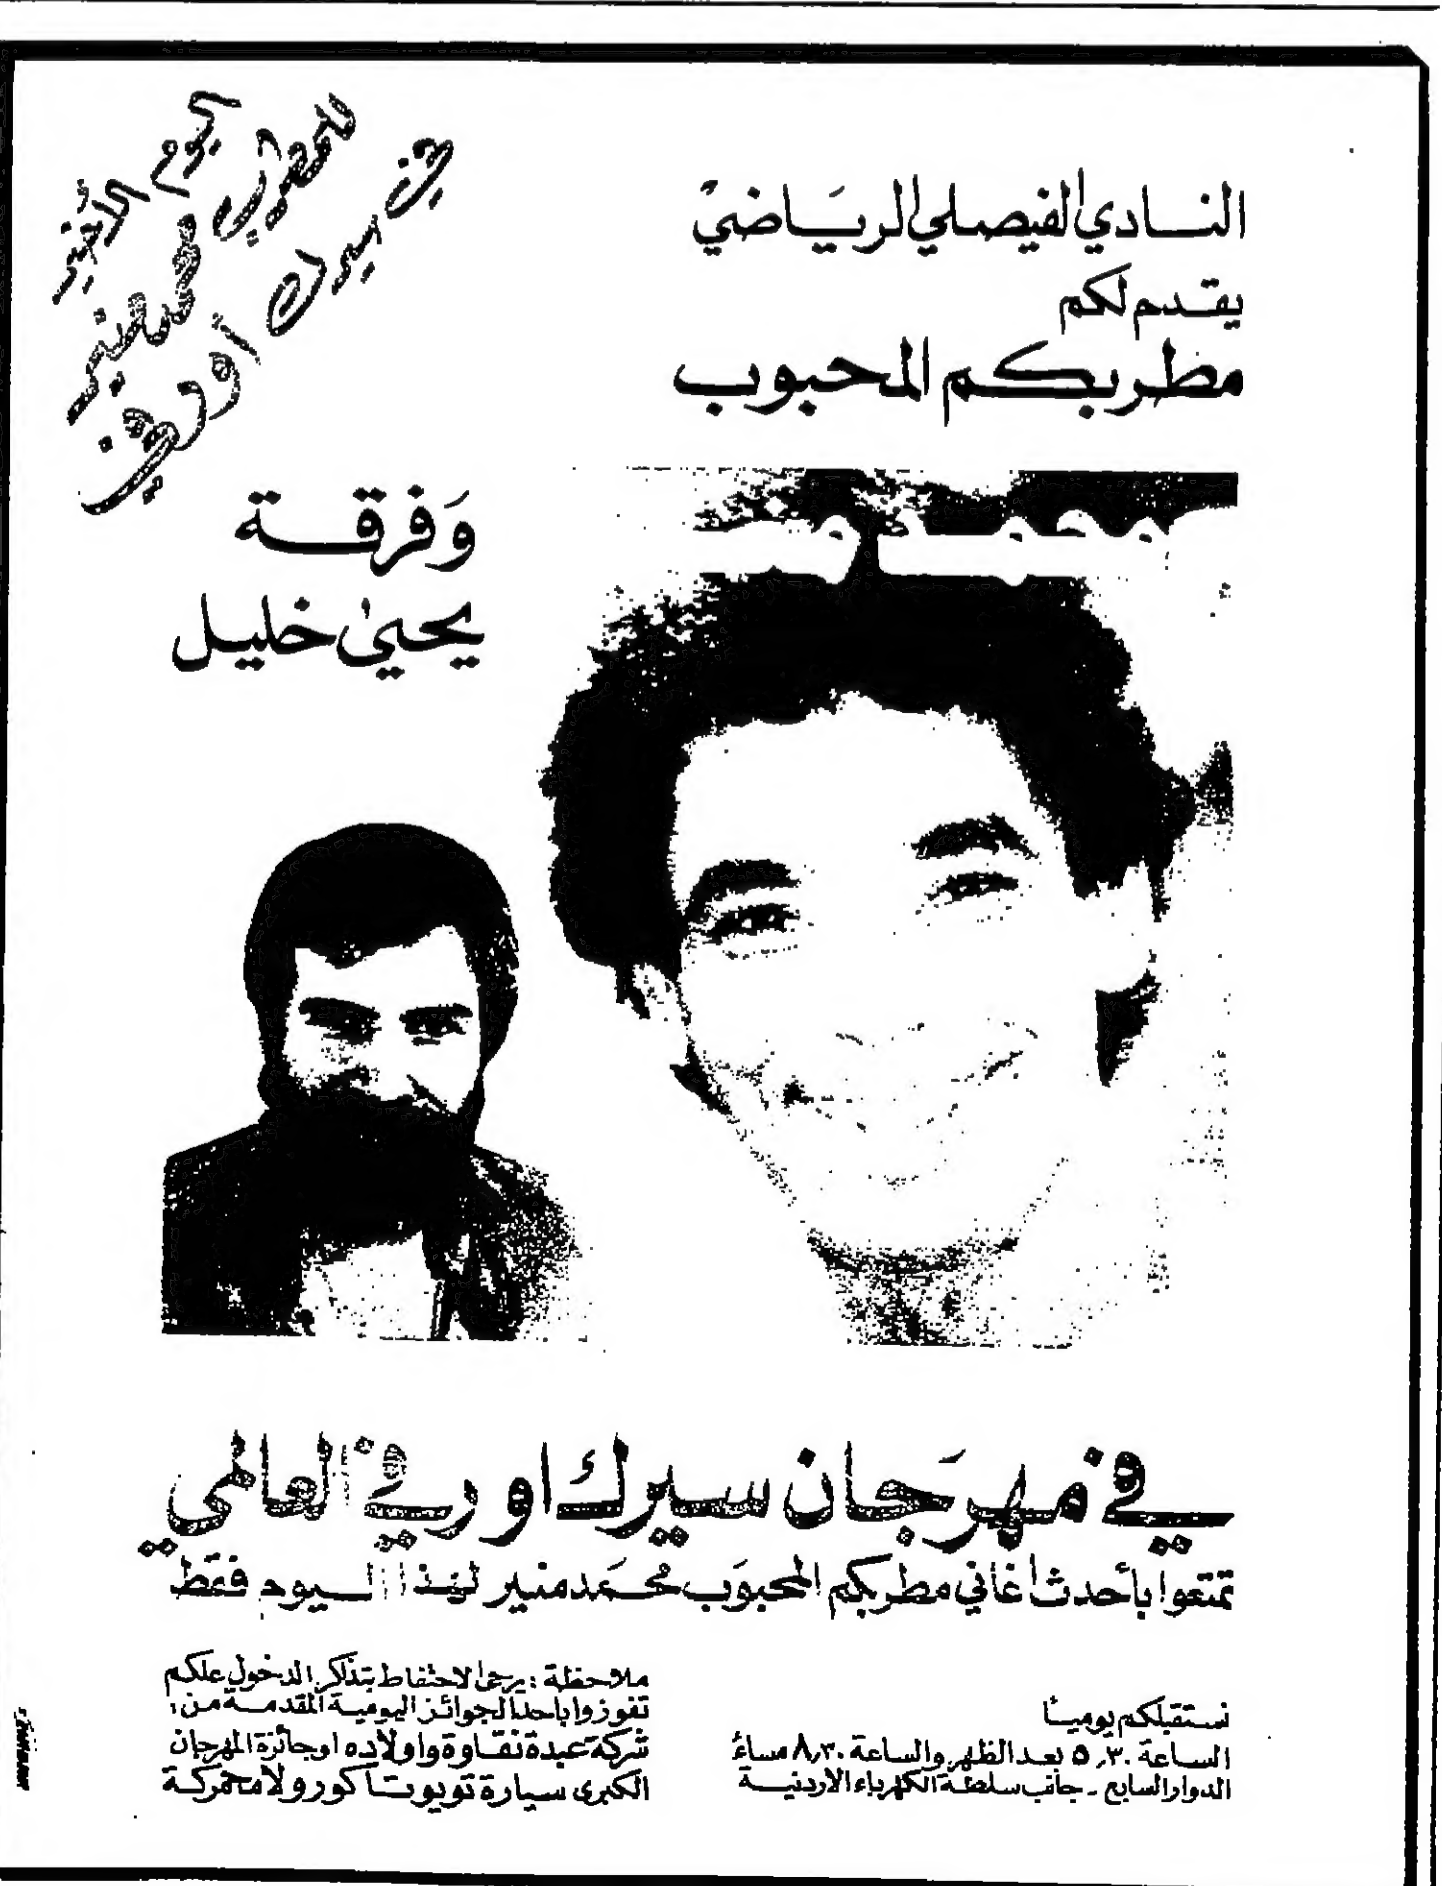 النادي الفيصلي الرياضي
يقدم لكم
مطربكم المحبوب
اليوم الأخير
للمطرب محمد منير
في سيرك أورفي
محمد منير
وفرقة
يحيى خليل
في مهرجان سيرك اورفي العالمي
تمتعوا بأحدث اغاني مطربكم المحبوب محمد منير لهذا اليوم فقط
نستقبلكم يوميا
الساعة ٥,٣٠ بعد الظهر والساعة ٨,٣٠ مساءً
الدوار السابع - جانب سلطة الكهرباء الاردنية
ملاحظة : يرجى الاحتفاظ بتذاكر الدخول علكم
تفوزوا باحد الجوائز اليومية المقدمة من :
شركة عبدة نقاوة واولاده او جائزة المهرجان
الكبرى سيارة تويوتا كورولا مجمركة